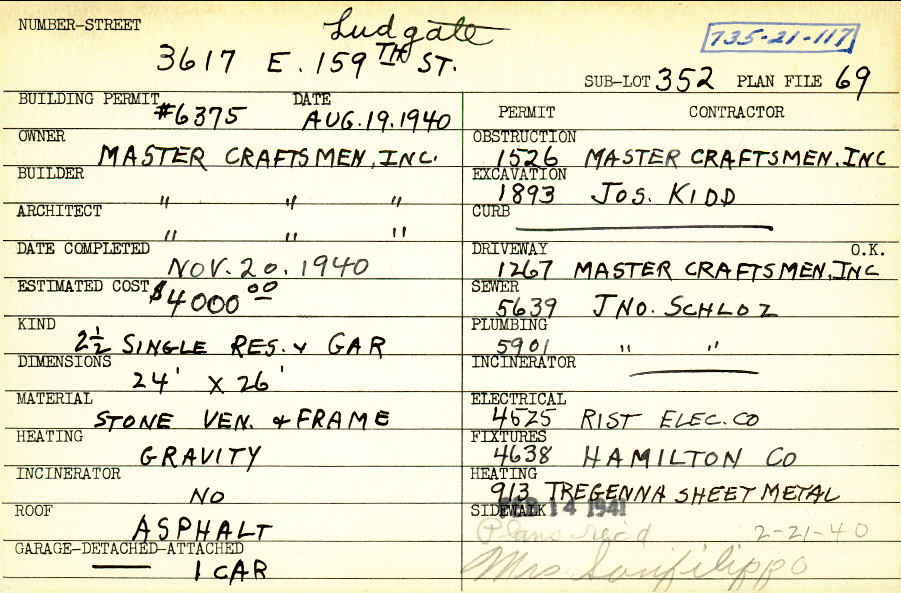 NUMBER-STREET
Ludgate
3617 E. 159TH ST.
735-21-117
SUB-LOT 352 PLAN FILE 69
BUILDING PERMIT #6375 DATE AUG. 19. 1940
OWNER MASTER CRAFTSMEN, INC.
BUILDER " " "
ARCHITECT " " "
DATE COMPLETED NOV. 20. 1940
ESTIMATED COST $4000 00
KIND 2½ SINGLE RES. & GAR
DIMENSIONS 24' X 26'
MATERIAL STONE VEN. & FRAME
HEATING GRAVITY
INCINERATOR NO
ROOF ASPHALT
GARAGE-DETACHED-ATTACHED 1 CAR
PERMIT CONTRACTOR
OBSTRUCTION 1526 MASTER CRAFTSMEN. INC
EXCAVATION 1893 JOS. KIDD
CURB
DRIVEWAY O.K.
1267 MASTER CRAFTSMEN, INC
SEWER 5639 JNO. SCHLOZ
PLUMBING 5901 " "
INCINERATOR
ELECTRICAL 4525 RIST ELEC. CO
FIXTURES 4638 HAMILTON CO
HEATING 913 TREGENNA SHEET METAL
SIDEWALK 14 1941
Plans rec'd 2-21-40
Mrs Sanfilippo